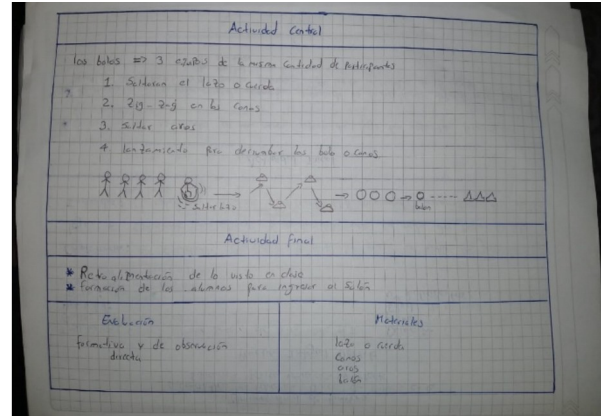 Actividad Central
los bolos => 3 equipos de la misma cantidad de participantes
1. Saltaran el lazo o cuerda
2. Zig-Zag en los conos
3. Saltar aros
4 lanzamiento para derrumbar los bolo o conos
Salta lazo
balon
Actividad final
* Retroalimentación de lo visto en clase
* formación de los alumnos para ingresar al salón
Evaluación
formativa y de observación
directa
Materiales
lazo o cuerda
Conos
aros
balón